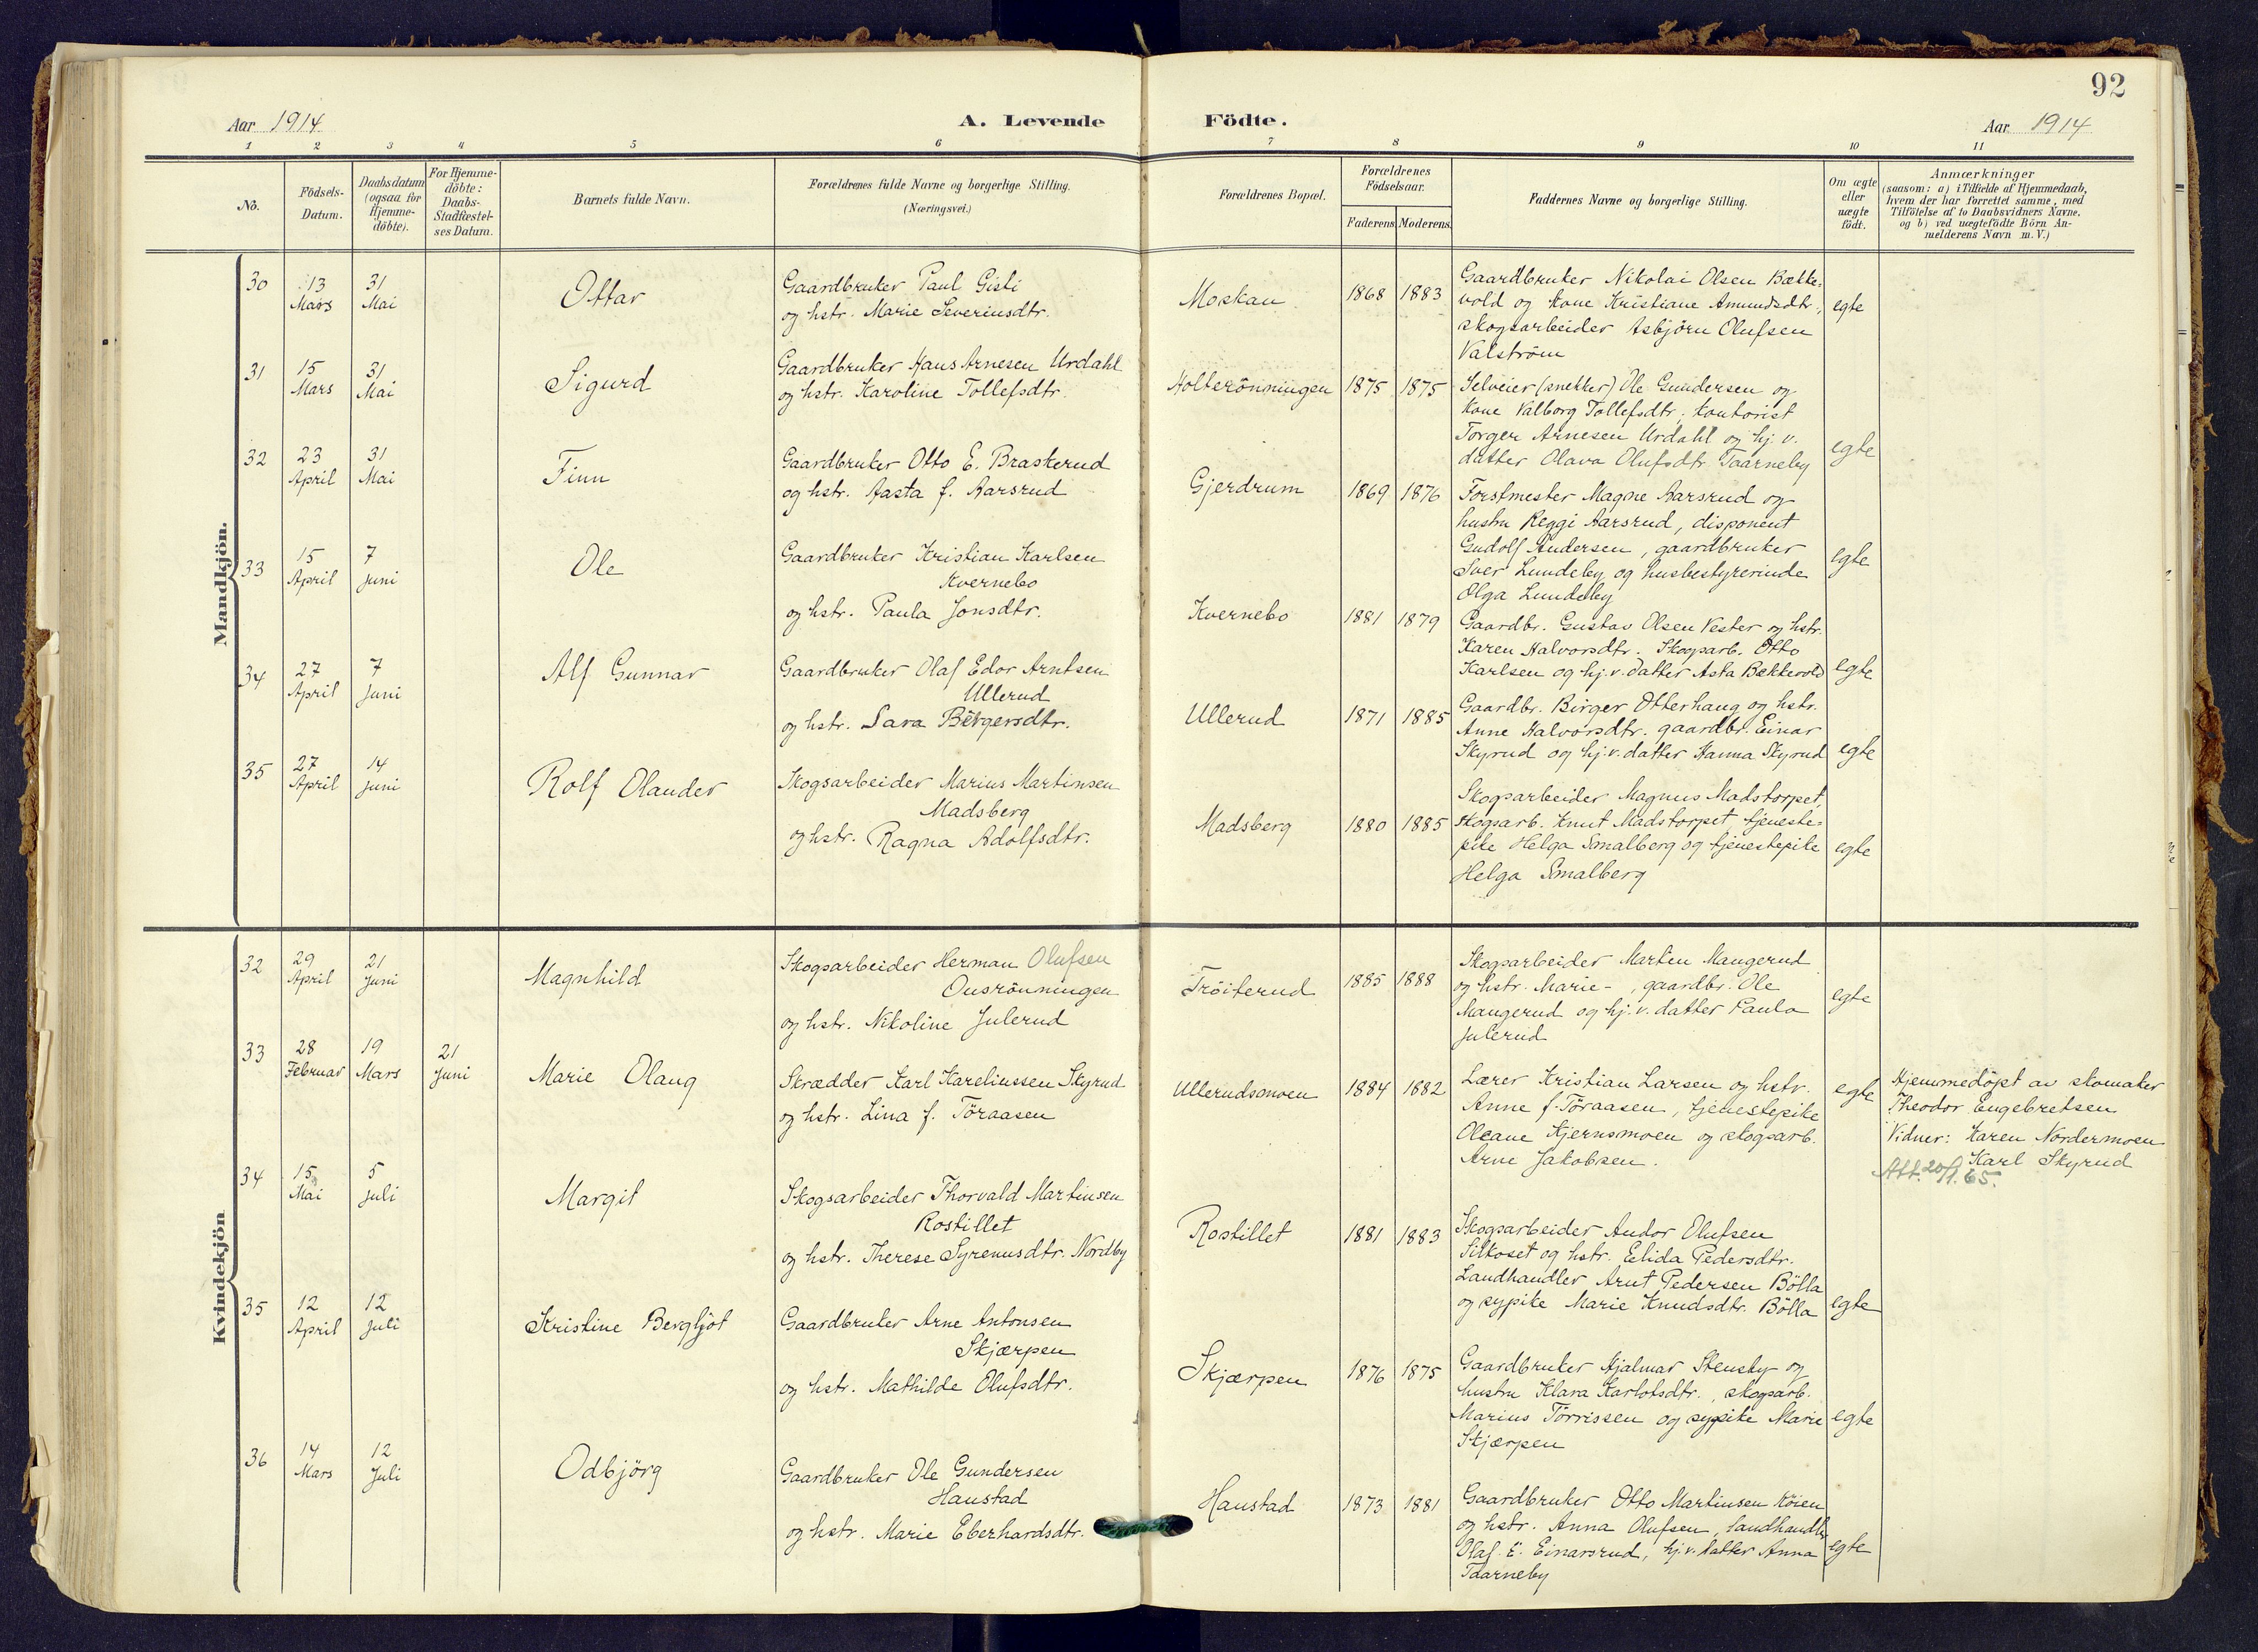 92
Aar 1914
A. Levende Födte.
Aar 1914
1 2 3 4 5 6 7 8 9 10 11
No.
Födsels-
Datum.
Daabsdatum
(ogsaa for
Hjemme-
döbte).
For Hjemme-
döbte:
Daabs-
Stadfæstel-
ses Datum.
Barnets fulde Navn.
Forældrenes fulde Navne og borgerlige Stilling.
(Næringsvei.)
Forældrenes Bopæl.
Forældrenes
Födselsaar.
Faderens. Moderens.
Faddernes Navne og borgerlige Stilling.
Om ægte
eller
uægte
födt.
Anmærkninger
(saasom: a) i Tilfælde af Hjemmedaab,
hvem der har forrettet samme, med
Tilföielse af to Daabsvidners Navne.
og b) ved uægtefödte Börn An-
melderens Navn m. V.)
Mandkjön.
30
13
Mars
31
Mai
Ottar
Gaardbruker Paul Gisti
og hstr. Marie Severinsdtr.
Moskau
1868 1883
Gaardbruker Nikolai Olsen Bække-
vold og kone Kristiane Amundsdtr.,
skogsarbeider Asbjörn Olufsen
Valström
egte
31
15
Mars
31
Mai
Sigurd
Gaardbruker Hans Arnesen Urdahl
og hstr. Karoline Tollefsdtr.
Holterönningen
1875 1875
Selveier (snekker) Ole Gundersen og
kone Valborg Tollefsdtr. kontorist
Torger Arnesen Urdahl og hj. v.
datter Olava Olufsdtr. Taarneby
egte
32
23
April
31
Mai
Finn
Gaardbruker Otto E. Braskerud
og hstr. Aasta f. Aarsrud
Gjerdrum
1869 1876
Forstmester Magne Aarsrud og
hustru Reggi Aarsrud, disponent
Gudolf Andersen, gaardbruker
Iver Lundeby og husbestyrerinde
Olga Lundeby
egte
33
15
April
7
Juni
Ole
Gaardbruker Kristian Karlsen
Kvernebo
og hstr. Paula Jonsdtr.
Kvernebo
1881 1879
Gaardbr. Gustav Olsen Vester og hstr.
Karen Halvorsdtr. Skogsarb. Otto
Karlsen og hj. v. datter Asta Bækkevold
egte
34
27
April
7
Juni
Alf Gunnar
Gaardbruker Olaf Edor Arntsen
Ullerud
og hstr. Sara Börgersdtr.
Ullerud
1871 1885
Gaardbr. Birger Otterhaug og hstr.
Anne Halvorsdtr. gaardbr. Einar
Skyrud og hj. v. datter Hanna Skyrud
egte
35
27
April
14
Juni
Rolf Olander
Skogsarbeider Marius Martinsen
Madsberg
og hstr. Ragna Adolfsdtr.
Madsberg
1880 1885
Skogsarbeider Magnus Madstorpet,
skogsarb. Knut Madstorpet, tjeneste-
pike Helga Smalberg og tjenestepike
Helga Smalberg
egte
Kvindekjön
32
29
April
21
Juni
Magnhild
Skogsarbeider Herman Olufsen
Ousrönningen
og hstr. Nikoline Julerud
Tröiterud
1885 1888
Skogsarbeider Marten Mangerud
og hstr. Marie - , gaardbr. Ole
Mangerud og hj. v. datter Paula
Julerud
egte
33
28
Februar
19
Mars
21
Juni
Marie Olaug
Skrædder Karl Kareliussen Skyrud
og hstr. Lina f. Töraasen
Ullerudsmoen
1884 1882
Lærer Kristian Larsen og hstr.
Anne f. Töraasen, tjenestepike
Oleane Kjernsmoen og skogsarb.
Arne Jakobsen.
egte
Hjemmedöpt av skomaker
Theodor Engebretsen
Vidner: Karen Nordermoen
Karl Skyrud
Att. 20/1. 65.
34
15
Mai
5
Juli
Margit
Skogsarbeider Thorvald Martinsen
Rostillet
og hstr. Therese Syrenusdtr. Nordby
Rostillet
1881 1883
Skogsarbeider Andor Olufsen
Silkoset og hstr. Elida Pedersdtr.
Landhandler Arnt Pedersen Bölla
og sypike Marie Knudsdtr. Bölla
egte
35
12
April
12
Juli
Kristine Bergljot
Gaardbruker Arne Antonsen
Skjærpen
og hstr. Mathilde Olufsdtr.
Skjærpen
1876 1875
Gaardbruker Hjalmar Stensby og
hustru Klara Karlotsdtr., skogsarb.
Marius Törrissen og sypike Marie
Skjærpen
egte
36
14
Mars
12
Juli
Odbjörg
Gaardbruker Ole Gundersen
Haustad
og hstr. Marie Eberhardsdtr.
Haustad
1873 1881
Gaardbruker Otto Martinsen Köien
og hstr. Anna Olufsen, landhandler
Olaf E. Einarsrud, hj. v. datter Anna
Taarneby
egte